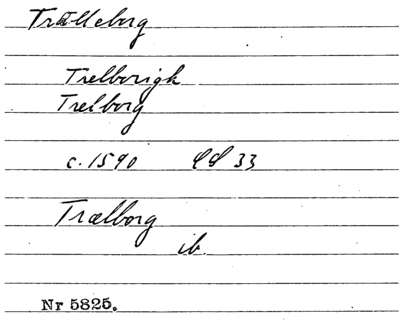 Trælleborg
Trelborigk
Trelborg
c. 1590 33
Trælborg
ib.
Nr 5825.